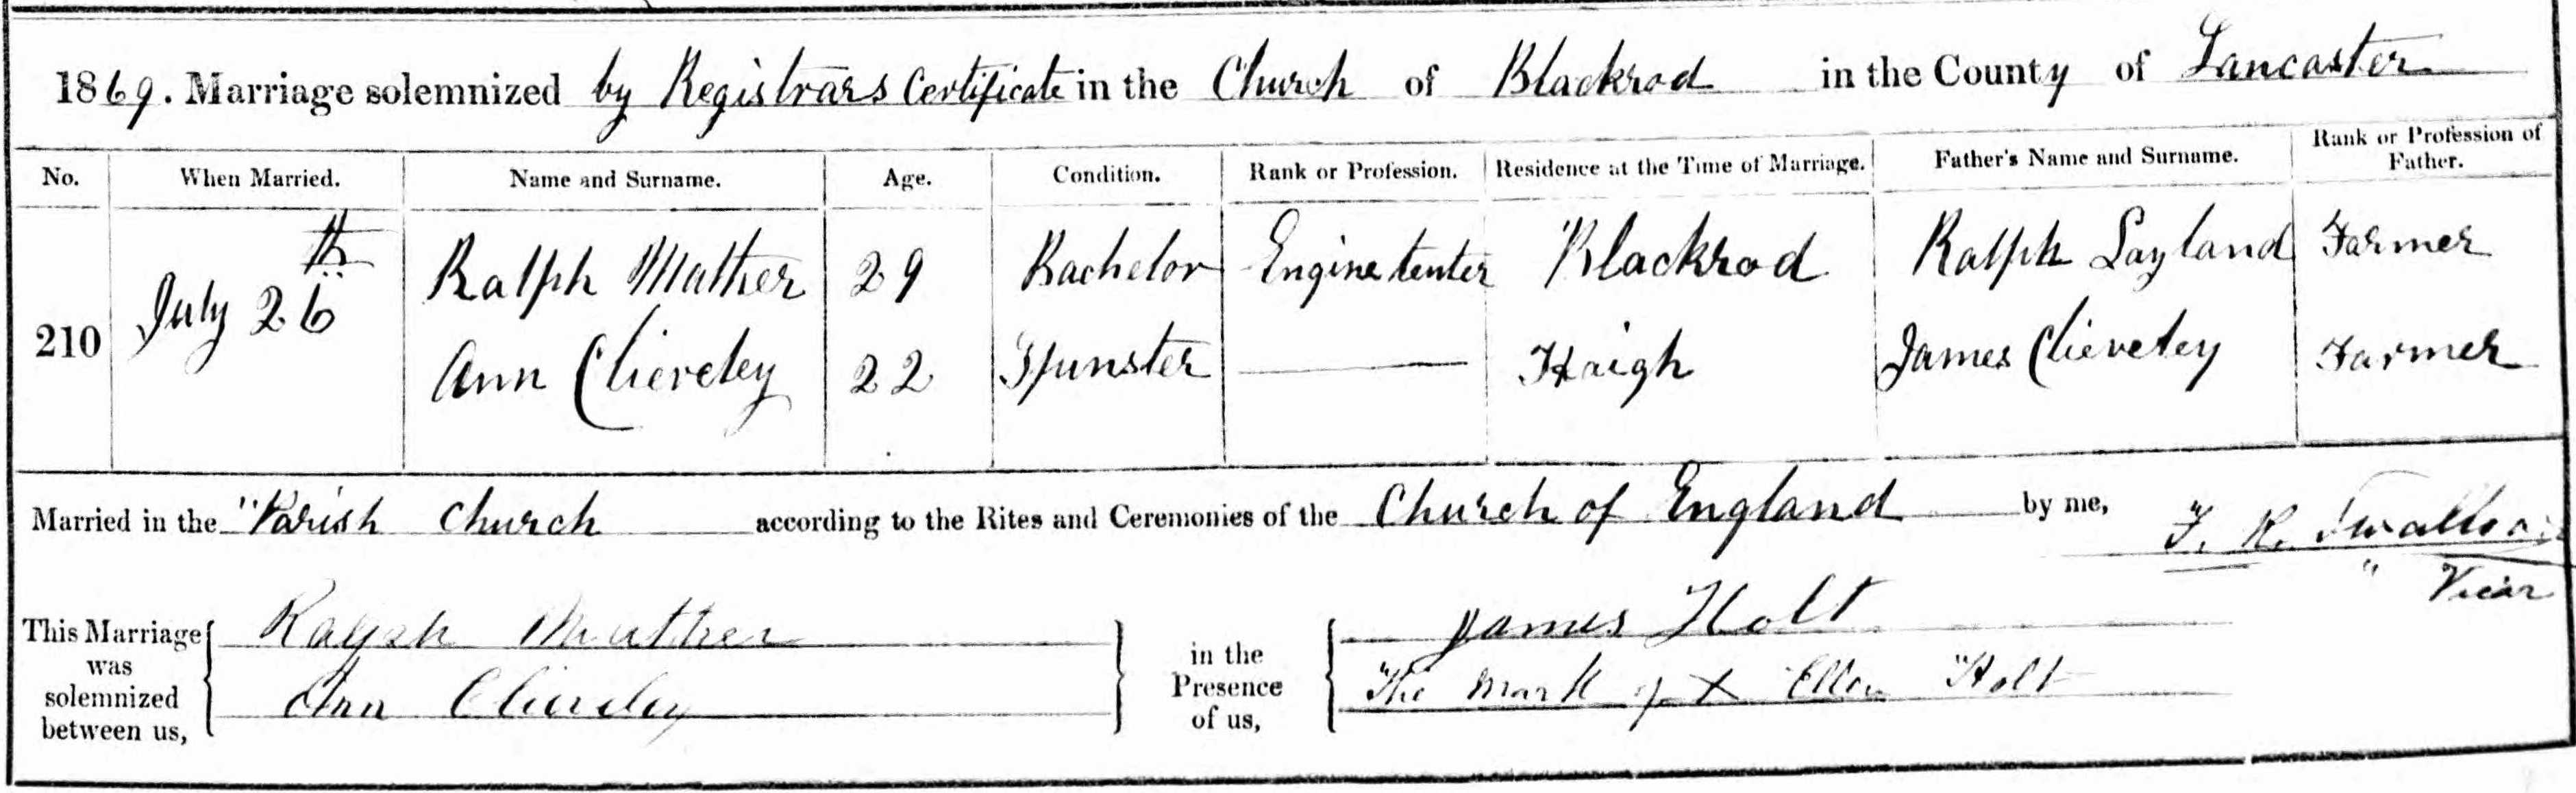 1869. Marriage solemnized by Registrars Certificate in the Church of Blackrod in the County of Lancaster
No. When Married. Name and Surname. Age. Condition. Rank or Profession. Residence at the Time of Marriage. Father's Name and Surname. Rank or Profession of Father.
210 July 26th Ralph Mather 29 Bachelor Engine tenter Blackrod Ralph Layland Farmer
Ann Clieveley 22 Spinster Haigh James Clieveley Farmer
Married in the Parish Church according to the Rites and Ceremonies of the Church of England by me, F. R. Swallow
Vicar
This Marriage was solemnized between us, Ralph Mather in the Presence of us, James Holt
Ann Clieveley The mark of X Ellen Holt